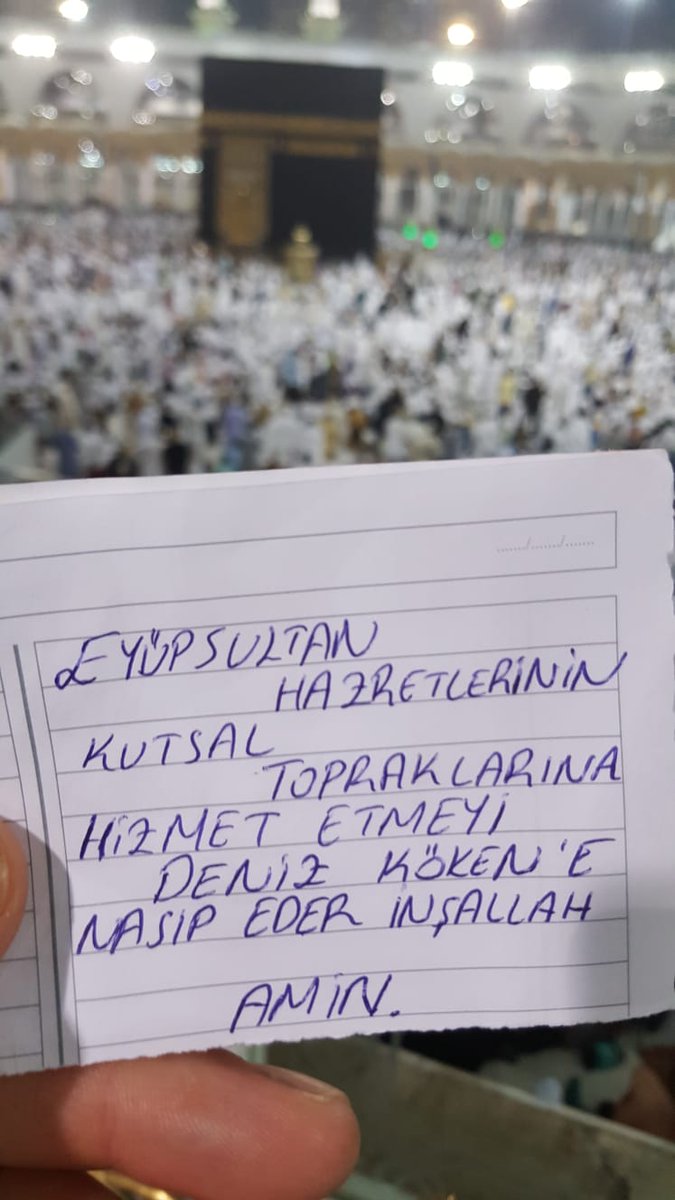 EYÜPSULTAN
HAZRETLERİNİN
KUTSAL
TOPRAKLARINA
HİZMET ETMEYİ
DENİZ KÖKEN'E
NASİP EDER İNŞALLAH
AMİN.
....../....../......